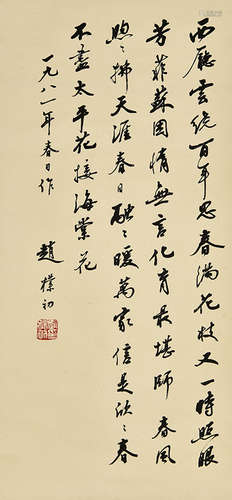 西廳雲繞百年思春滿花枝又一時照眼
芳菲蘇國情無言化育最堪師春風
煦〻拂天涯春日融〻暖萬家信是欣〻春
不盡太平花接海棠花
一九八一年春日作
趙樸初